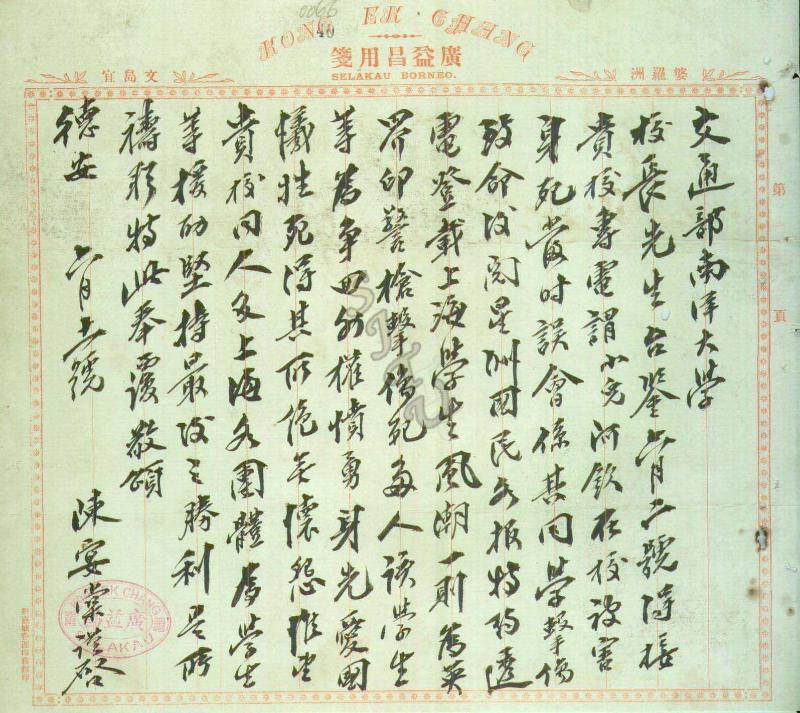 0066
40
KONG EK CHANG
廣益昌用箋
SELAKAU BORNEO.
婆羅洲
文島宜
第 頁
交通部南洋大學
校長先生台鑒六月二號得接
貴校專電謂小兒河欽在校被害
身死當时誤會係其同學擊傷
致命後閱星洲國民各报特約透
電登載上海學生風潮一則爲英
界印警槍擊傷死多人該學生
等爲争回利權憤勇身先愛國
犧牲死得其所絶無懷怨惟望
貴校同人及上海各團體爲學生
等援助堅持最後之勝利是所
禱彩特此奉覆敬頌
德安 六月十一號
陳宴棠謹啓
KONG EK CHANG
廣益昌
SELAKAU